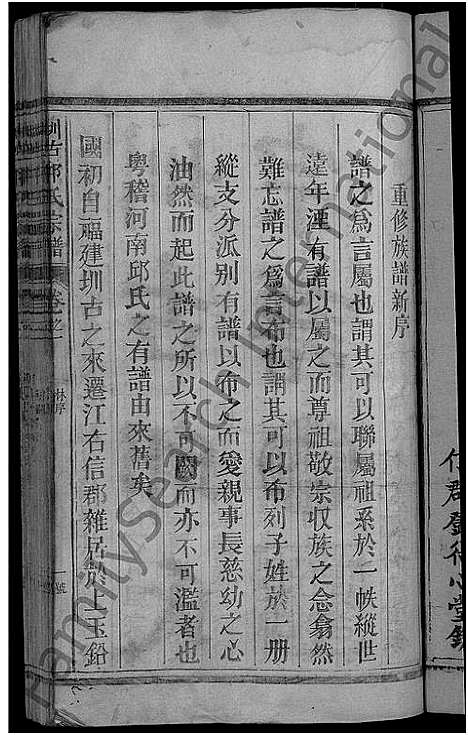 重修族譜新序
譜之爲言屬也謂其可以聯屬祖系於一帙縱世
遠年湮有譜以屬之而尊祖敬宗収族之念翕然
難忘譜之爲言布也謂其可以布列子姓於一册
縱支分派别有譜以布之而愛親事長慈幼之心
油然而起此譜之所以不可闕而亦不可濫者也
粤稽河南邱氏之有譜由來舊矣
國初自福建圳古之來遷江右信郡雜居於上玉鉛
圳古邱氏宗譜
卷之
林序
號
FamilySearch International